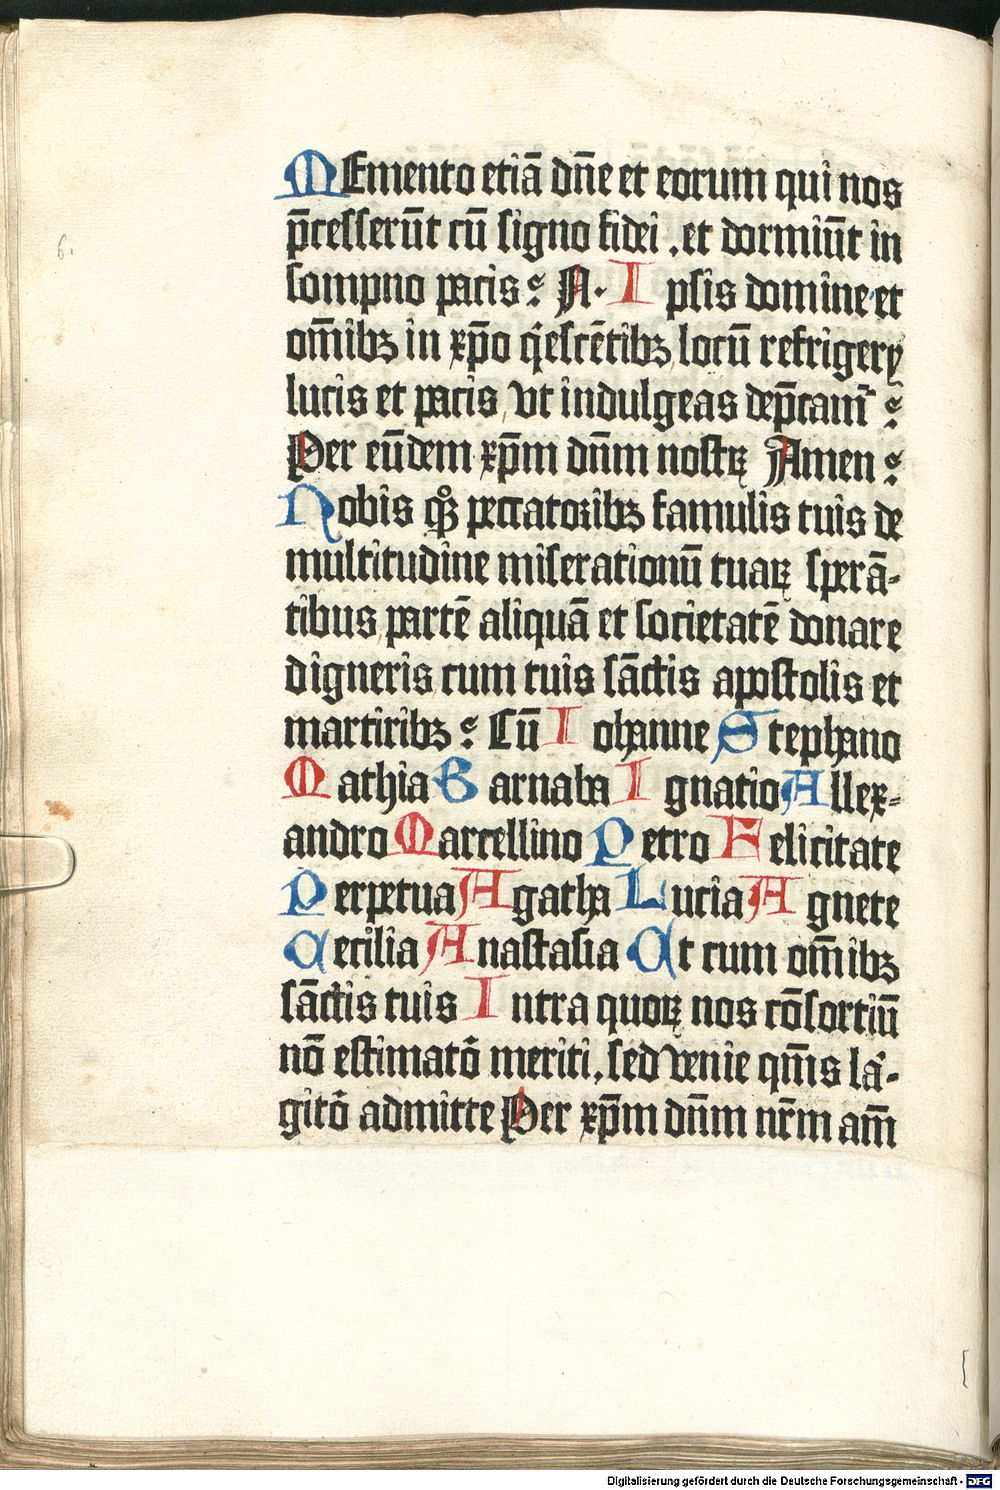 MEmento etiā dn̄e et eorum qui nos
p̄cesserūt cū signo fidei .et dormiūt in
sompno pacis: N. Ipsis domine et
om̄ibꝫ in xp̄o q̇escētibꝫ locū refrigery
lucis et pacis, vt indulgeas dep̄camr̄ :
Per eūdem xp̄m dn̄m nostrꝝ Amen :
Nobis qꝫ peccatoribꝫ famulis tuis de
multitudine miserationū tuaꝝ sperā-
tibus, partē aliquā et societatē donare
digneris cum tuis sāctis apostolis et
martiribꝫ : Cū Iohanne Stephano
Mathia Barnaba Ignatio Allex-
andro Marcellino Petro Felicitate
Perpetua Agatha Lucia Agnete
Cecilia Anastasia Et cum om̄ibꝫ
sāctis tuis Intra quoꝝ nos cōsortiū
nō estimatō meriti, sed venie qm̄s la-
gitō admitte Per xp̄m dn̄m nr̄m am̄
6.
Digitalisierung gefördert durch die Deutsche Forschungsgemeinschaft - DFG